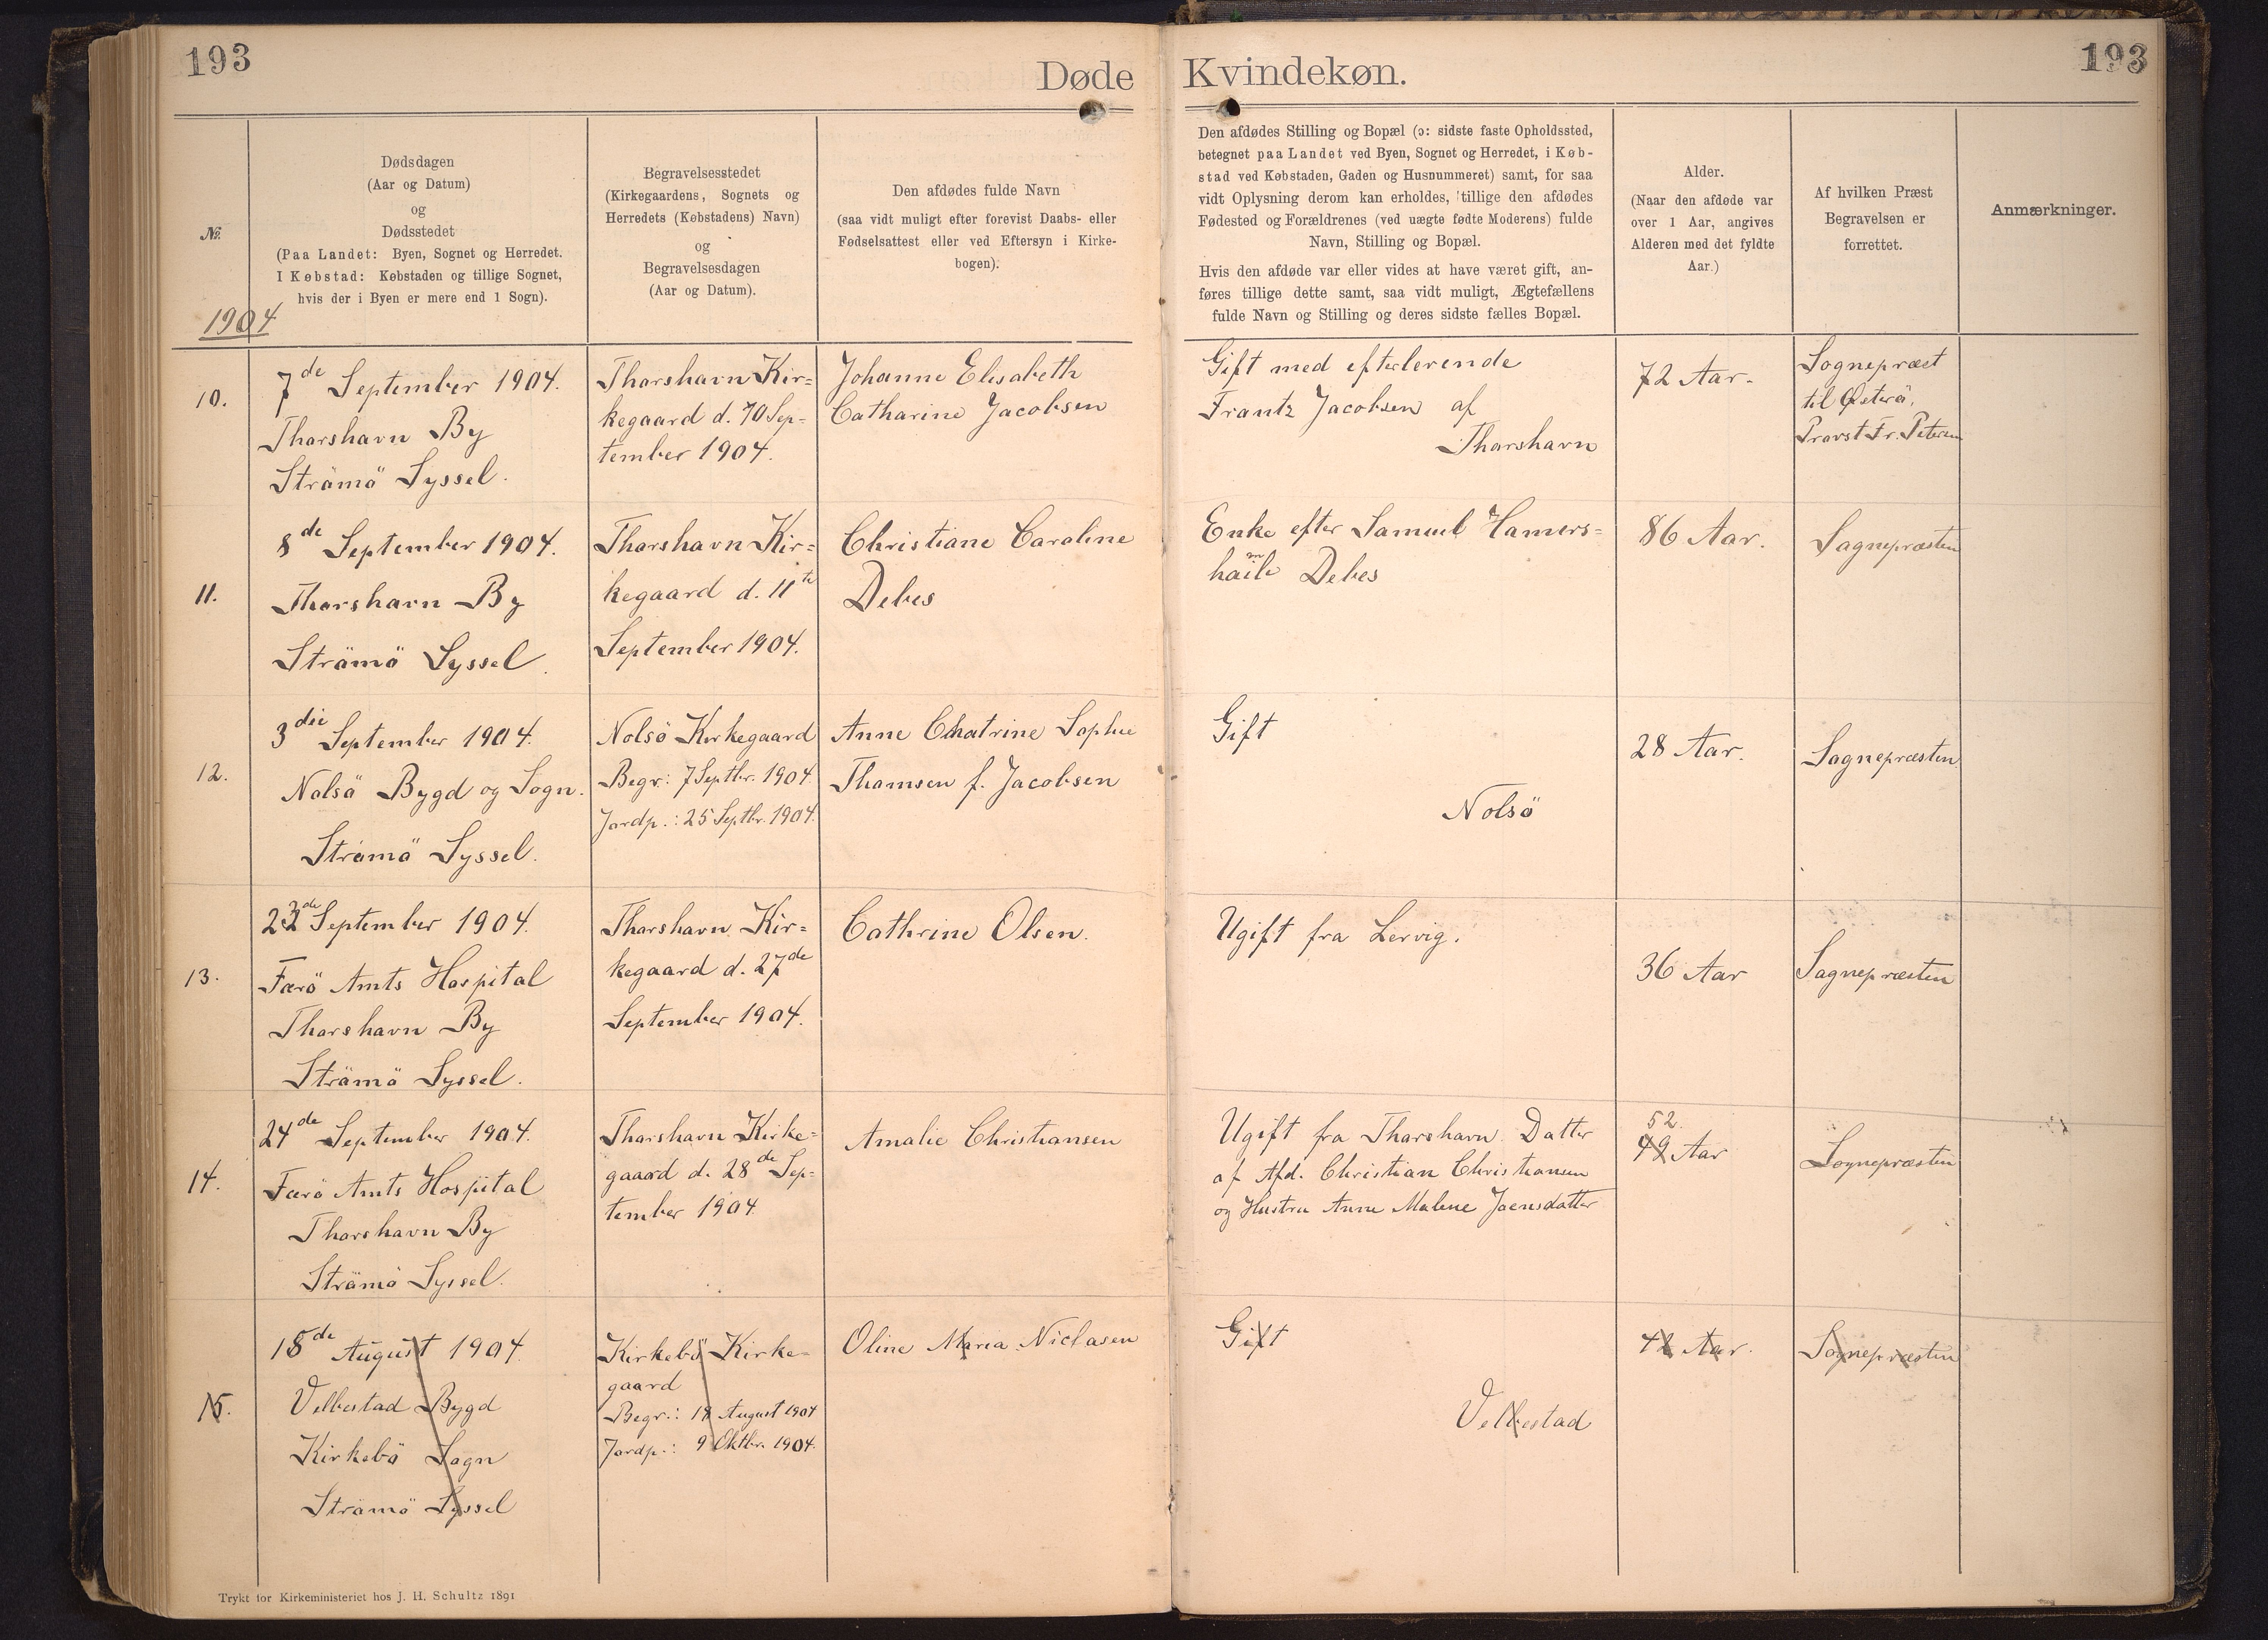 193
Døde Kvindekøn.
193
№
1904
Dødsdagen
(Aar og Datum)
og
Dødsstedet
(Paa Landet: Byen, Sognet og Herredet.
I Købstad: Købstaden og tillige Sognet,
hvis der i Byen er mere end 1 Sogn).
Begravelsesstedet
(Kirkegaardens, Sognets og
Herredets (Købstadens) Navn)
og
Begravelsesdagen
(Aar og Datum).
Den afdødes fulde Navn
(saa vidt muligt efter forevist Daabs- eller
Fødselsattest eller ved Eftersyn i Kirke-
bogen).
Den afdødes Stilling og Bopæl (ɔ: sidste faste Opholdssted,
betegnet paa Landet ved Byen, Sognet og Herredet, i Køb-
stad ved Købstaden, Gaden og Husnummeret) samt, for saa
vidt Oplysning derom kan erholdes, tillige den afdødes
Fødested og Forældrenes (ved uægte fødte Moderens) fulde
Navn, Stilling og Bopæl.
Hvis den afdøde var eller vides at have været gift, an-
føres tillige dette samt, saa vidt muligt, Ægtefællens
fulde Navn og Stilling og deres sidste fælles Bopæl.
Alder.
(Naar den afdøde var
over 1 Aar, angives
Alderen med det fyldte
Aar.)
Af hvilken Præst
Begravelsen er
forrettet.
Anmærkninger.
10.
7de September 1904.
Thorshavn By
Strömö Syssel.
Thorshavn Kir=
kegaard d. 10 Sep-
tember 1904.
Johanne Elisabeth
Catharine Jacobsen
Gift med efterlevende
Frantz Jacobsen af
Thorshavn
72 Aar.
Sognepræst
til Østerö,
Provst Fr. Petersen
11.
8de September 1904.
Thorshavn By
Strömö Syssel.
Thorshavn Kir=
kegaard d. 11te
September 1904.
Christiane Caroline
Debes
Enke efter Samuel Hamers=
Debes
86 Aar.
Sognepræsten
12.
3die September 1904.
Nolsö Bygd og Sogn.
Strömö Syssel.
Nolsö Kirkegaard
Begr: 7 Septbr. 1904.
Jordp.: 25 Septbr. 1904.
Anne Sophie
Thomsen f. Jacobsen
Gift
Nolsö
28 Aar.
Sognepræsten.
13.
September 1904.
Færö Amts Hospital
Thorshavn By
Strömö Syssel.
Thorshavn Kir=
kegaard d. 27de
September 1904.
Cathrine Olsen.
Ugift fra Lervig.
36 Aar
Sognepræsten
14.
24de September 1904.
Færö Amts Hospital
Thorshavn By
Strömö Syssel.
Thorshavn Kirke=
gaard d. 28de Sep-
tember 1904.
Amalie Christiansen
Ugift fra Thorshavn. Datter
af Afd. Christian Christiansen
og Hustru Anne Malene Joensdatter
52.
49 Aar
Sognepræsten
15.
18de August 1904.
Velbestad Bygd
Kirkebö Sogn
Strömö Syssel
Kirkebö Kirke=
gaard
Begr.: August 1904
Jordp.: 9 Oktbr. 1904.
Oline Maria Niclasen
Gift
Velbestad
42 Aar.
Sognepræsten
Trykt for Kirkeministeriet hos J. H. Schultz 1891